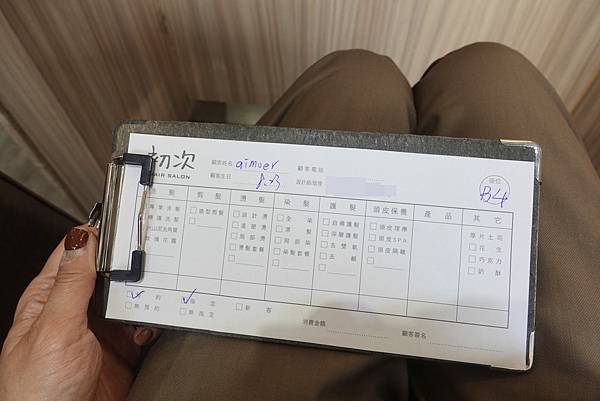 初次
HAIR SALON
顧客姓名 aimoer 顧客電話
顧客生日 8.23 設計師/助理
座位
B4
洗髮 剪髮 燙髮 染髮 護髮 頭皮保養 產品 其它
造型剪髮
設計燙
溫塑燙
局部燙
燙髮套餐
全染
漂
局部染
染髮套餐
自備護髮
深層護髮
去雙氧
去鹼
頭皮理療
頭皮SPA
頭皮隔離
厚片土司
花生
巧克力
奶酥
玫瑰花園
預約 指定 新客
無預約 無指定
消費金額
顧客簽名